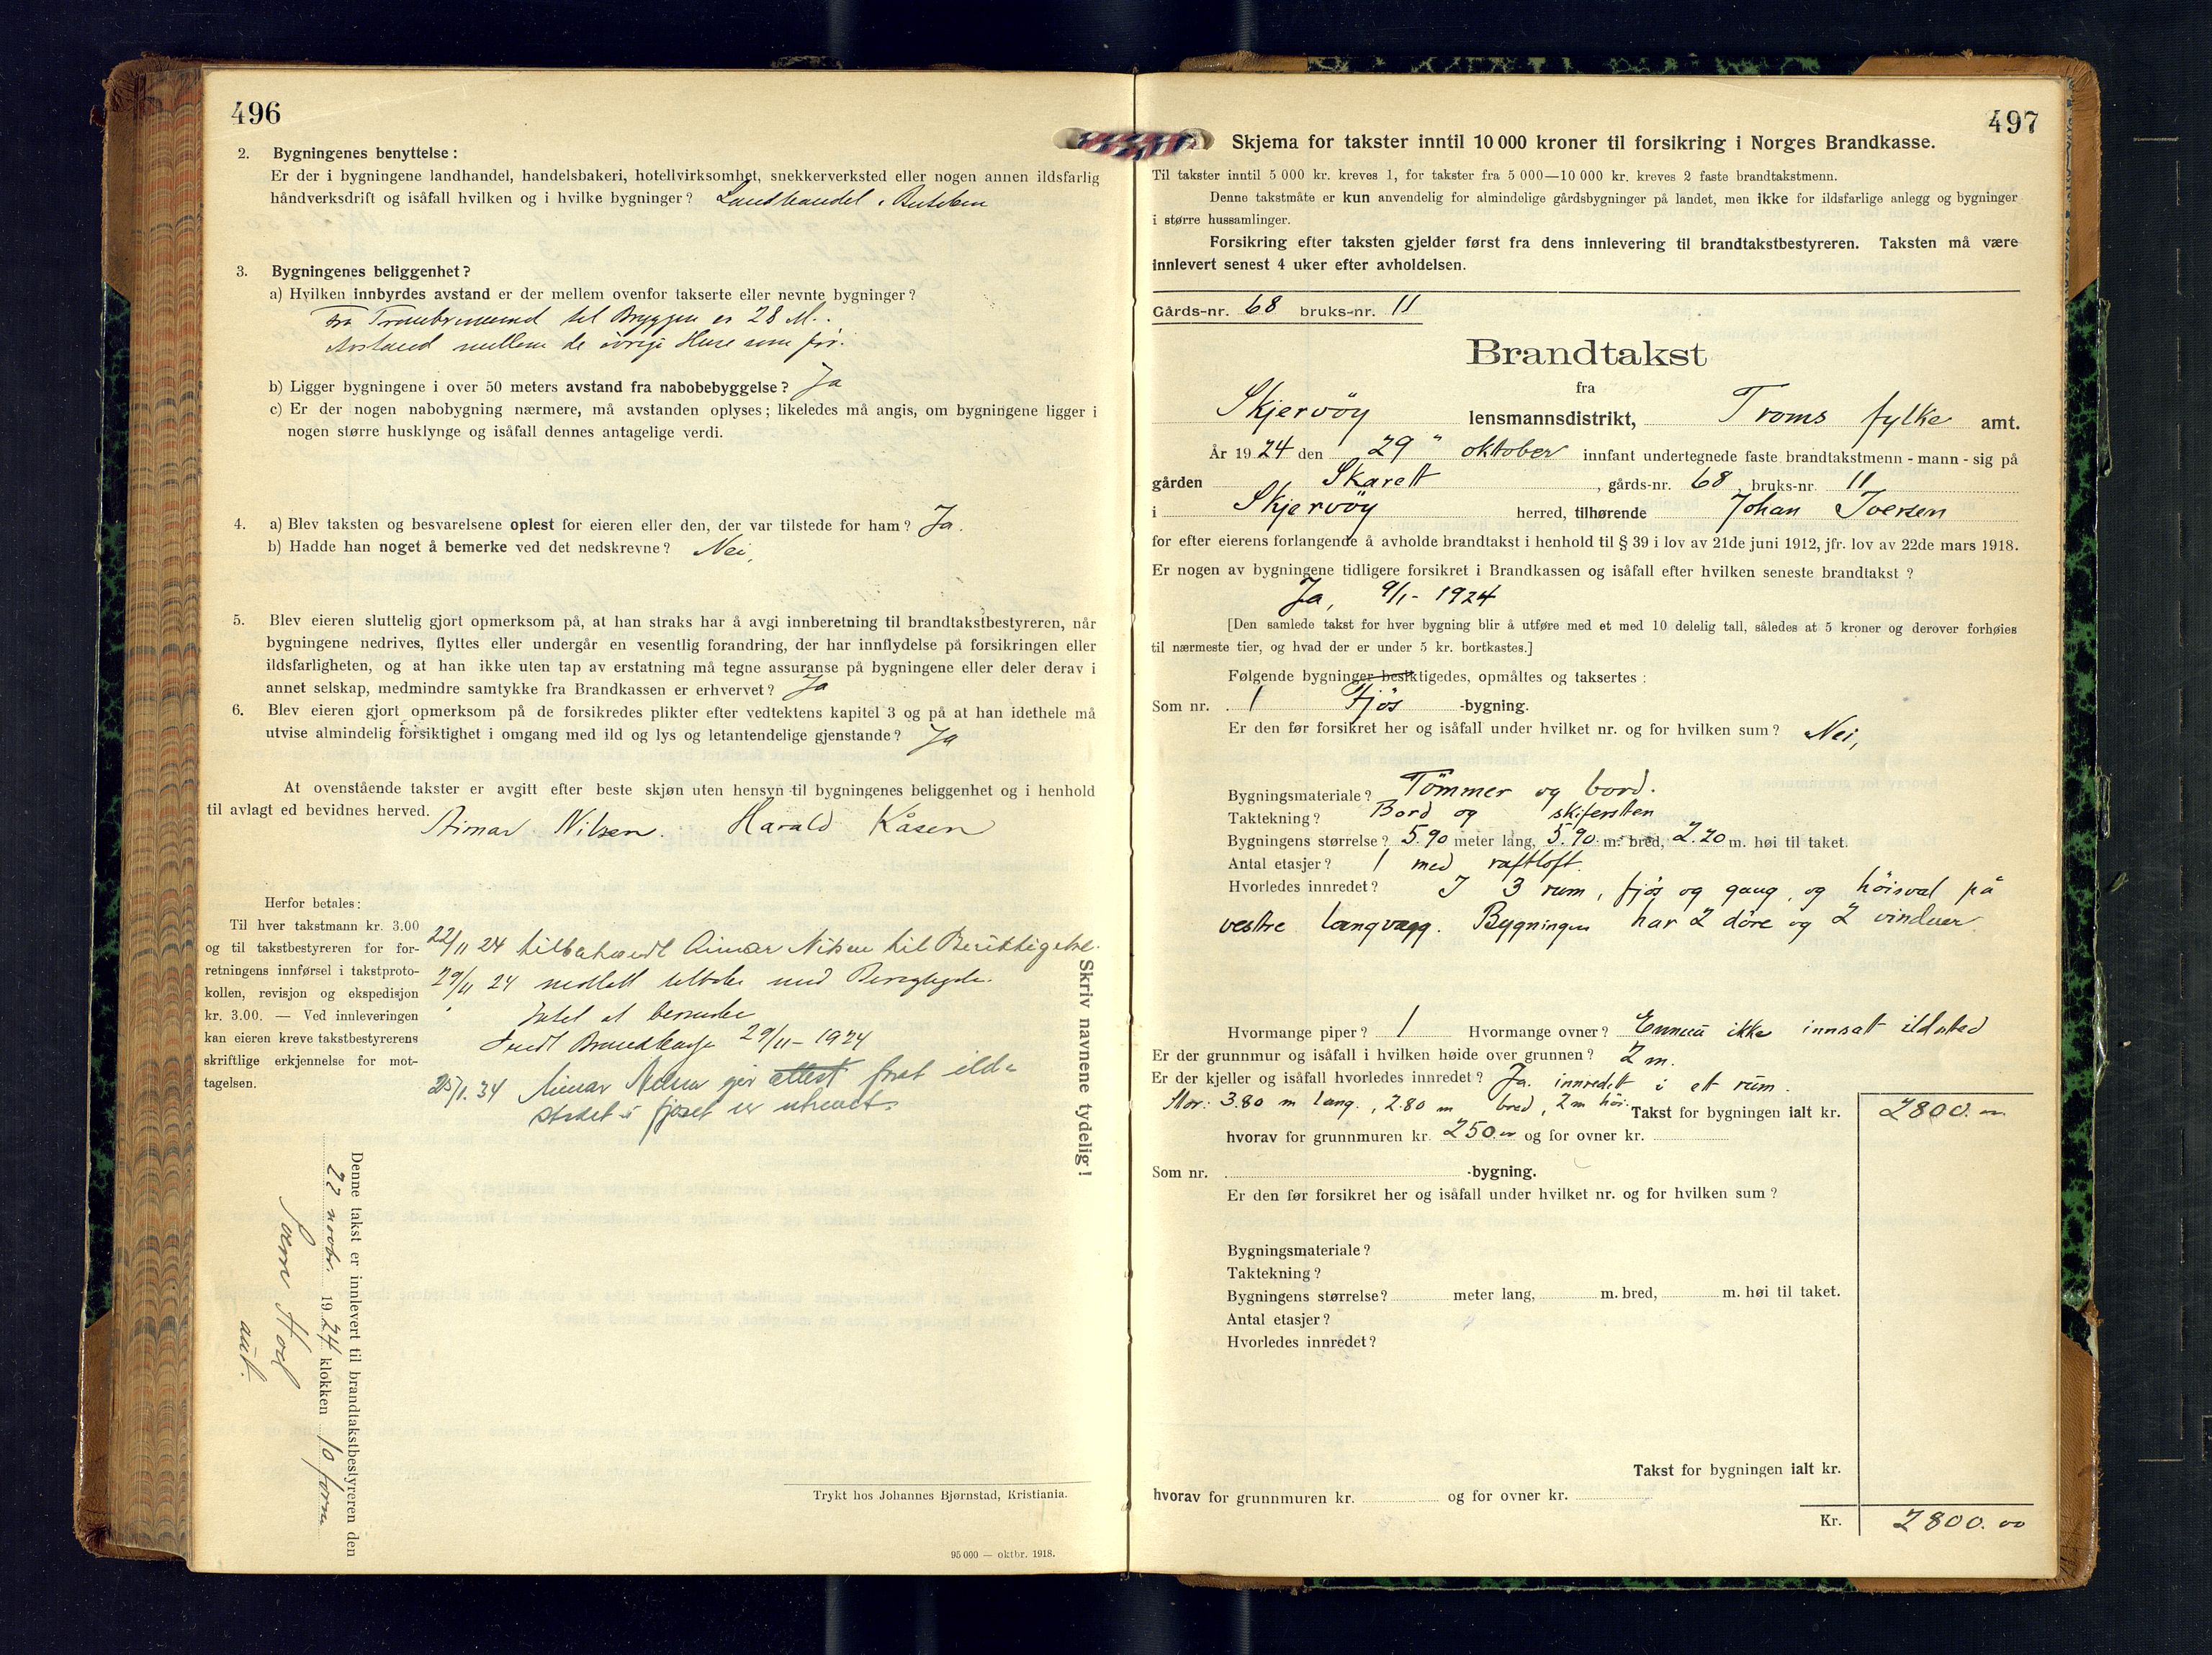 496
2. Bygningenes benyttelse:
Er der i bygningene landhandel, handelsbakeri, hotellvirksomhet, snekkerverksted eller nogen annen ildsfarlig
håndverksdrift og isåfall hvilken og i hvilke bygninger? Landhandel i Butikken
3. Bygningenes beliggenhet?
a) Hvilken innbyrdes avstand er der mellem ovenfor takserte eller nevnte bygninger?
Fra til Bryggen er 28 M.
Avstand mellem de övrige Huse som för.
b) Ligger bygningene i over 50 meters avstand fra nabobebyggelse? Ja
c) Er der nogen nabobygning nærmere, må avstanden oplyses; likeledes må angis, om bygningene ligger i
nogen større husklynge og isåfall dennes antagelige verdi.
4. a) Blev taksten og besvarelsene oplest for eieren eller den, der var tilstede for ham? Ja.
b) Hadde han noget å bemerke ved det nedskrevne? Nei,
5. Blev eieren sluttelig gjort opmerksom på, at han straks har å avgi innberetning til brandtakstbestyreren, når
bygningene nedrives, flyttes eller undergår en vesentlig forandring, der har innflydelse på forsikringen eller
ildsfarligheten, og at han ikke uten tap av erstatning må tegne assuranse på bygningene eller deler derav i
annet selskap, medmindre samtykke fra Brandkassen er erhvervet? Ja
6. Blev eieren gjort opmerksom på de forsikredes plikter efter vedtektens kapitel 3 og på at han idethele må
utvise almindelig forsiktighet i omgang med ild og lys og letantendelige gjenstande? Ja
At ovenstående takster er avgitt efter beste skjøn uten hensyn til bygningenes beliggenhet og i henhold
til avlagt ed bevidnes herved.
Aimar Nilsen. Harald Kåsen
Herfor betales:
Til hver takstmann kr. 3.00
og til takstbestyreren for for-
retningens innførsel i takstproto-
kollen, revisjon og ekspedisjon
kr. 3.00. — Ved innleveringen
kan eieren kreve takstbestyrerens
skriftlige erkjennelse for mot-
tagelsen.
22/11 24 tilbakesendt Aimar Nilsen til Beriktigelse.
29/11 24 mottatt tilbake med
Intet at bemerke
Sendt Brandkasse 29/11-1924
25/1. 34 Aimar Nilsen gir attest forat ild-
stedet i fjöset er utrevet.
Skriv navnene tydelig!
Denne takst er innlevert til brandtakstbestyreren den
22 novbr. 19 24 klokken 10 form
Sverre Hoel
aut.
Trykt hos Johannes Bjørnstad, Kristiania.
95 000 — oktbr. 1918.
497
Skjema for takster inntil 10 000 kroner til forsikring i Norges Brandkasse.
Til takster inntil 5 000 kr. kreves 1, for takster fra 5 000—10 000 kr. kreves 2 faste brandtakstmenn.
Denne takstmåte er kun anvendelig for almindelige gårdsbygninger på landet, men ikke for ildsfarlige anlegg og bygninger
i større hussamlinger.
Forsikring efter taksten gjelder først fra dens innlevering til brandtakstbestyreren. Taksten må være
innlevert senest 4 uker efter avholdelsen.
Gårds-nr. 68 bruks-nr. 11
Brandtakst
fra
Skjervöy lensmannsdistrikt, Troms fylke amt.
År 19 24 den 29" oktober innfant undertegnede faste brandtakstmenn - mann - sig på
gården Skarett, gårds-nr. 68, bruks-nr. 11
i Skjervöy herred, tilhørende Johan Iversen
for efter eierens forlangende å avholde brandtakst i henhold til § 39 i lov av 21de juni 1912, jfr. lov av 22de mars 1918.
Er nogen av bygningene tidligere forsikret i Brandkassen og isåfall efter hvilken seneste brandtakst?
Ja, 9/1- 1924
[Den samlede takst for hver bygning blir å utføre med et med 10 delelig tall, således at 5 kroner og derover forhøies
til nærmeste tier, og hvad der er under 5 kr. bortkastes.]
Følgende bygninger besiktigedes, opmåltes og taksertes:
Som nr. 1 Fjös -bygning.
Er den før forsikret her og isåfall under hvilket nr. og for hvilken sum? Nei,
Bygningsmateriale? Tömmer og bord.
Taktekning? Bord og skifersten
Bygningens størrelse? 5.90 meter lang, 5.90. m. bred, 2.20 m. høi til taket.
Antal etasjer? 1 med raftloft.
Hvorledes innredet? I 3 rum, fjös og gang, og höisval på
vestre langvægg. Bygningen har 2 döre og 2 vinduer
Hvormange piper? 1 Hvormange ovner? Ennuu ikke innsatt ildsted
Er der grunnmur og isåfall i hvilken høide over grunnen? 2 m.
Er der kjeller og isåfall hvorledes innredet? Ja. innredet i ett rum.
Stor: 3.80 m lang, 2.80 m bred, 2 m höi. Takst for bygningen ialt kr. 2800.00
hvorav for grunnmuren kr. 250.00 og for ovner kr.
Som nr. -bygning.
Er den før forsikret her og isåfall under hvilket nr. og for hvilken sum?
Bygningsmateriale?
Taktekning?
Bygningens størrelse? meter lang, m. bred, m. høi til taket.
Antal etasjer?
Hvorledes innredet?
Takst for bygningen ialt kr.
hvorav for grunnmuren kr. og for ovner kr.
Kr. 2800.00